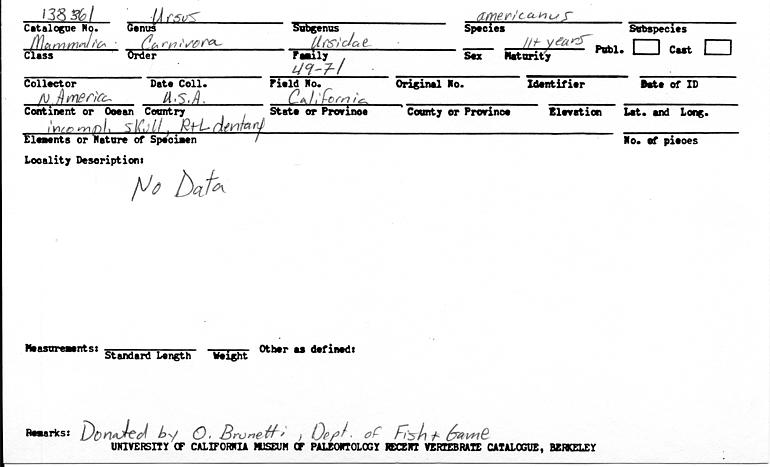 138361 Ursus americanus
Catalogue No. Genus Subgenus Species Subspecies
Mammalia Carnivora Ursidae 11+ years Publ. Cast
Class Order Family Sex Maturity
49-71
Collector Date Coll. Field No. Original No. Identifier Date of ID
N. America U.S.A. California
Continent or Ocean Country State or Province County or Province Elevation Lat. and Long.
incompl. skull, R+L dentary
Elements or Nature of Specimen No. of pieces
Locality Description:
No Data
Measurements: Standard Length Weight Other as defined:
Remarks: Donated by O. Brunetti, Dept. of Fish + Game
UNIVERSITY OF CALIFORNIA MUSEUM OF PALEONTOLOGY RECENT VERTEBRATE CATALOGUE, BERKELEY